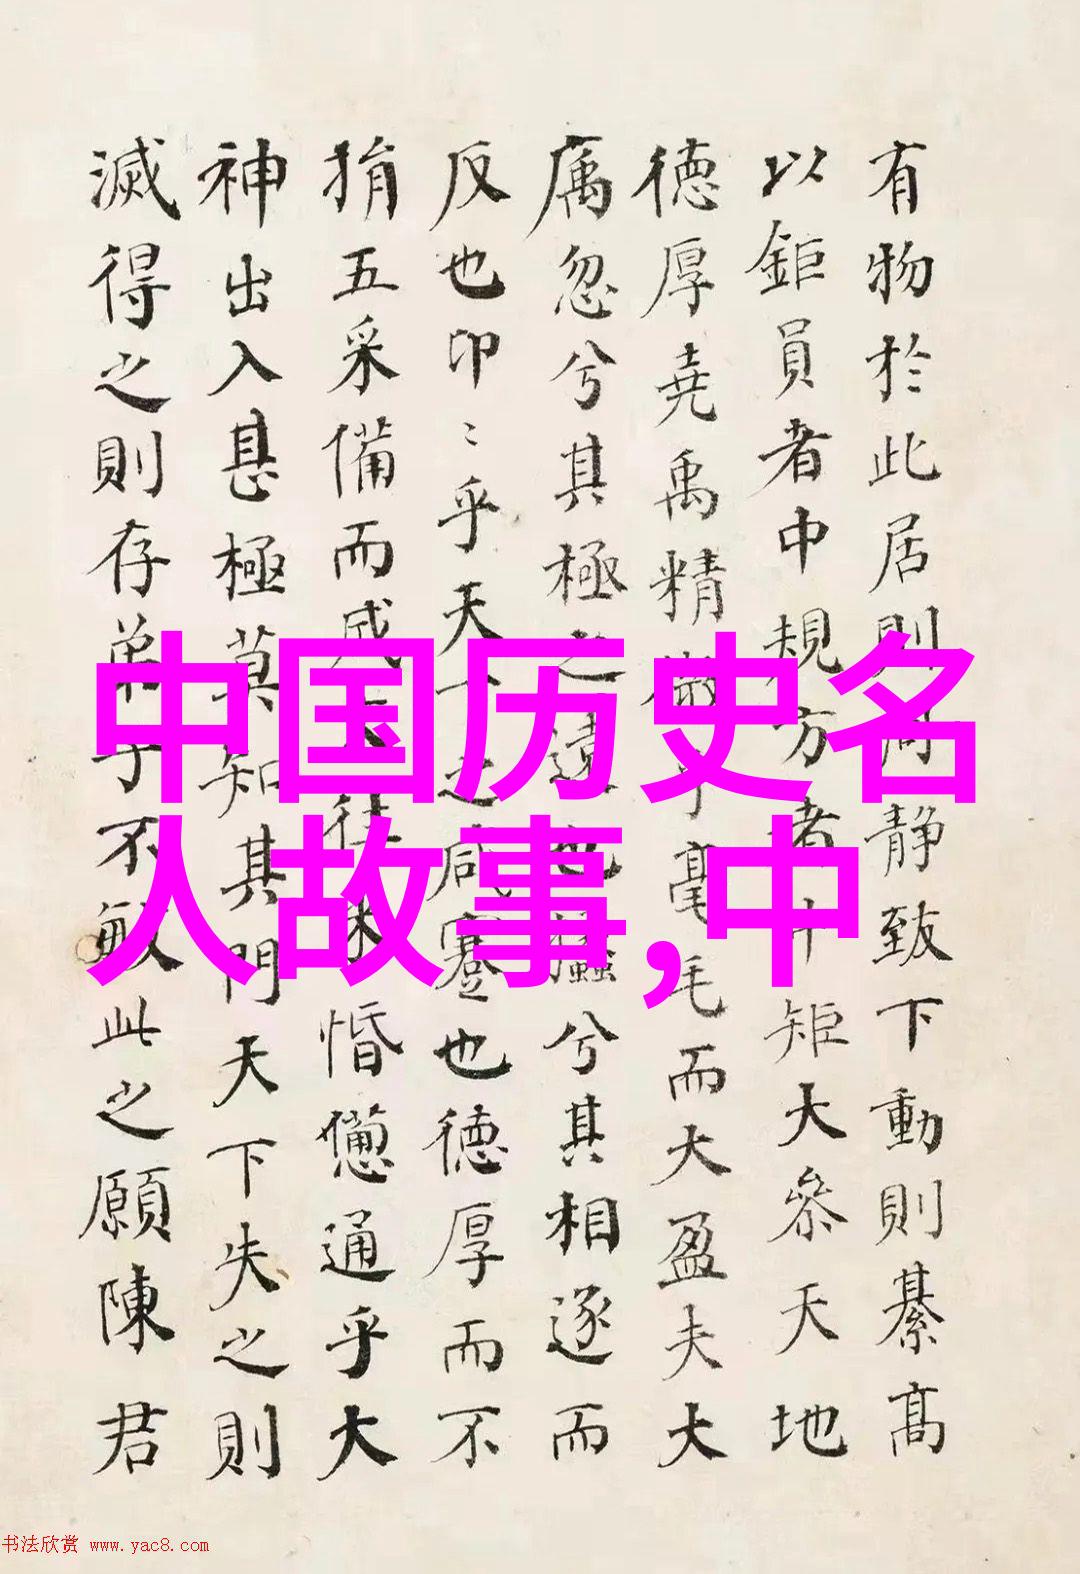 有物於此居則周靜致下動則綦高
以鉅員者中規方者中矩大參天地
德厚堯禹精微乎毫毛而大盈夫大
厲忽兮其極之遠也攭兮其相逐而
反也卬〻乎天下之咸蹇也德厚而不
捐五采備而成文往來惛憊通乎大
神出入甚極莫知其門天下失之則
滅得之則存弟子不敏此之願陳君
中国历史名
人故事,中
书法欣赏 www.yac8.com